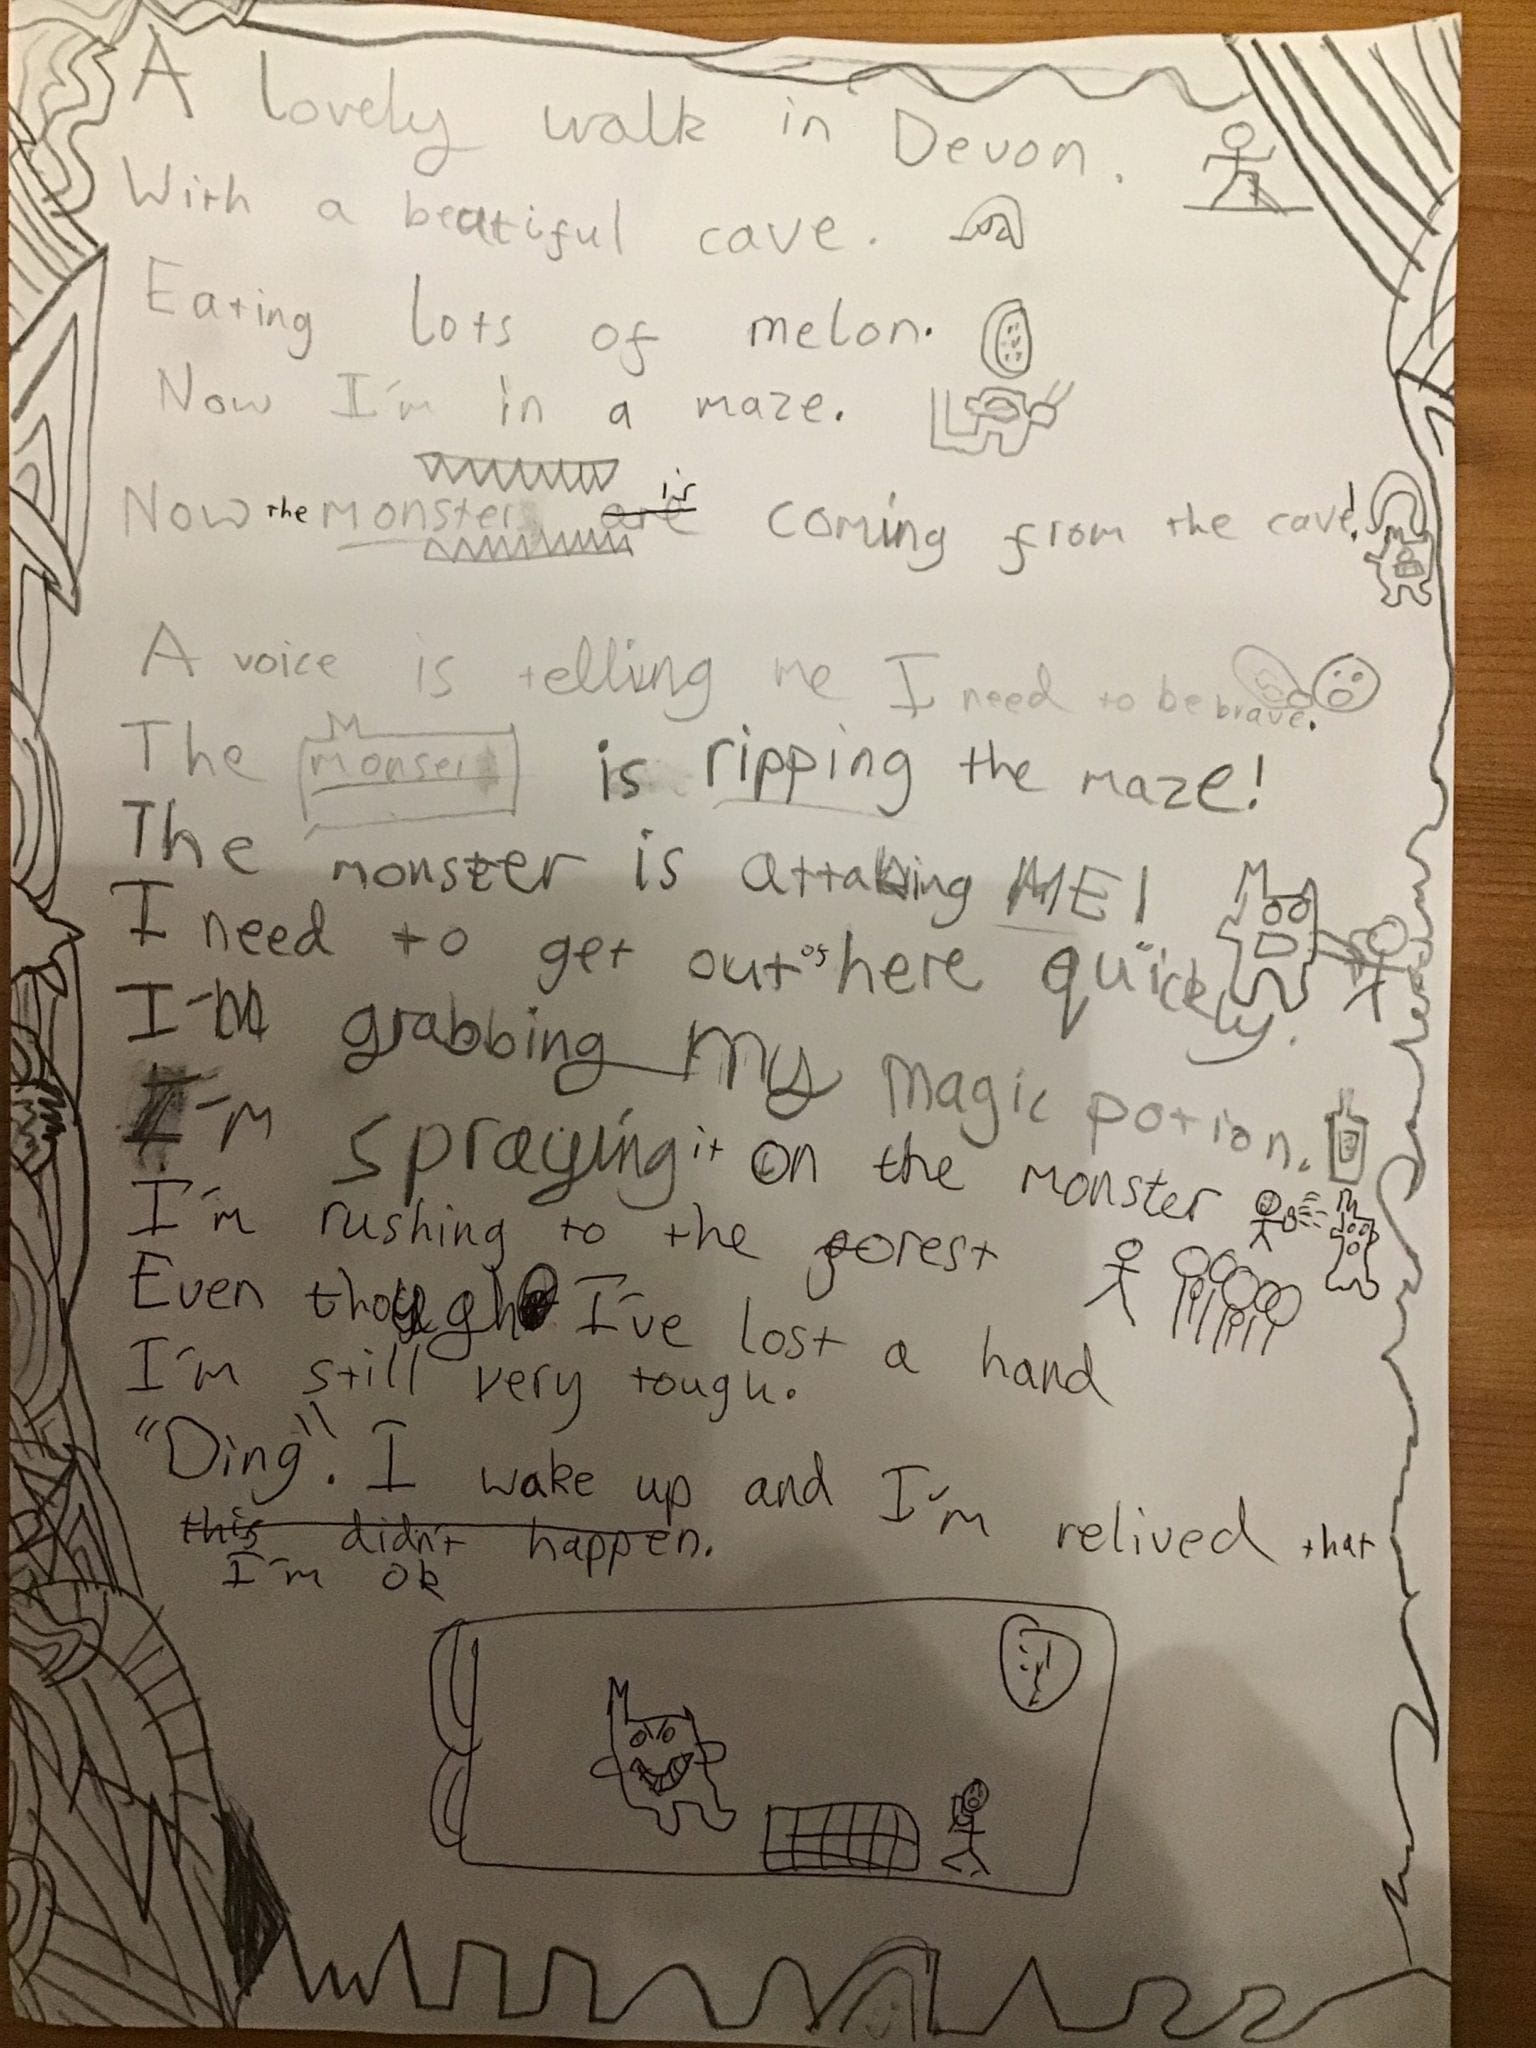 A lovely walk in Devon.
With a beatiful cave.
Eating lots of melon.
Now I'm in a maze.
Now the monster are is coming from the cave!
A voice is telling me I need to be brave.
The monser is ripping the maze!
The monster is attaking ME!
I need to get out of here quickly.
I'm grabbing my magic potion.
I'm spraying it on the monster
I'm rushing to the forest
Even though I've lost a hand
I'm still very tough.
"Ding". I wake up and I'm relived that
this didn't happen.
I'm ok